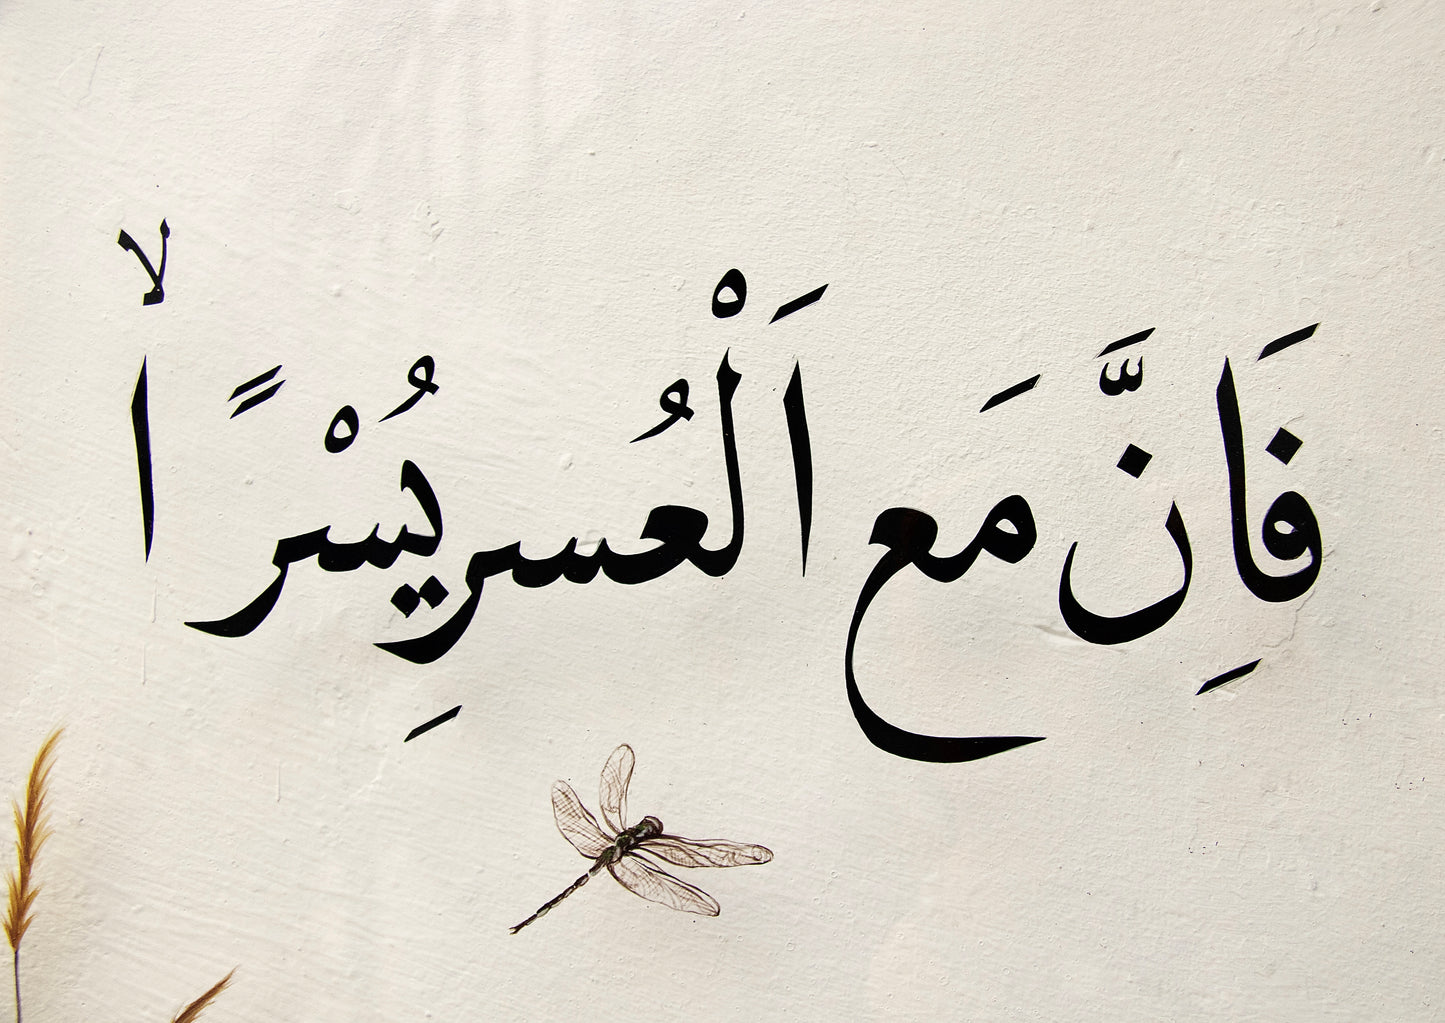 فَاِنَّ مَعَ اَلْعُسرِ يُسْرًاۙ